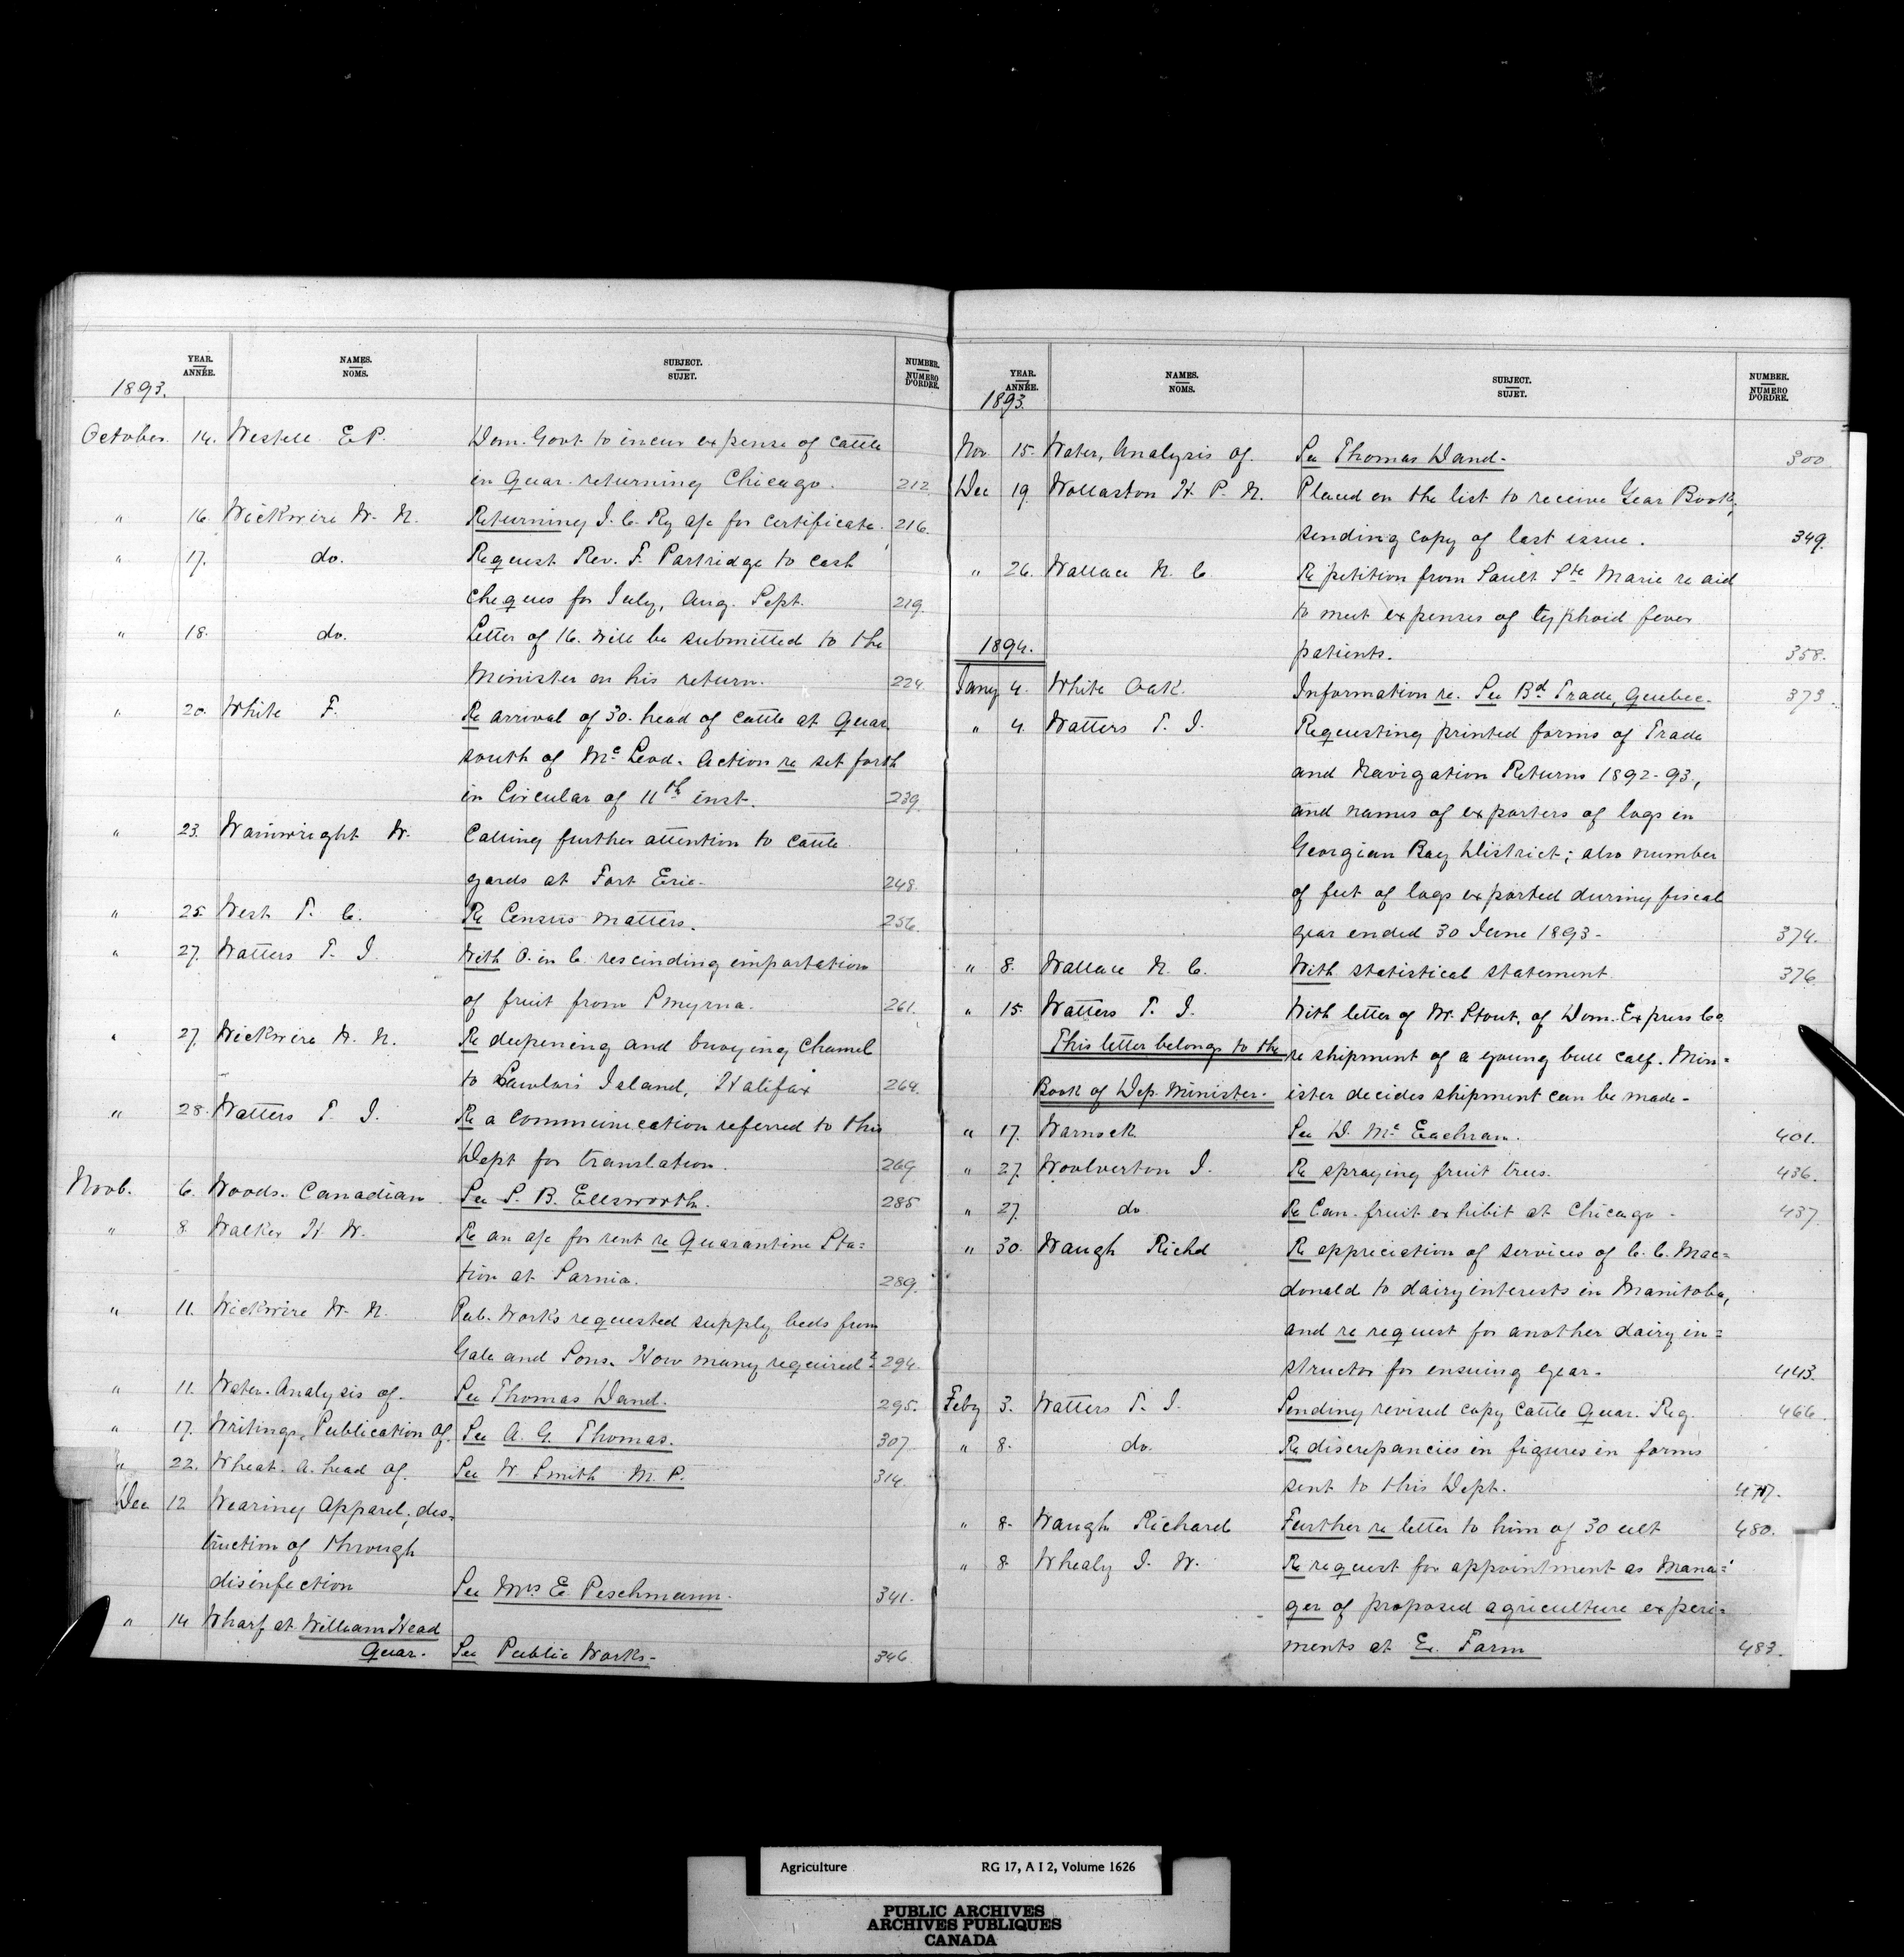 YEAR. NAMES. SUBJECT. NUMBER.
ANNÉE. NOMS. SUJET. NUMERO D'ORDRE.
1893.
October 14. Westell E P. Dom. Govt. to incur expense of cattle
in Quar. returning Chicago. 212
" 16. Wickwire W. N. Returning I. C. Ry a/c for certificate. 216.
" 17. do. Request Rev. F. Partridge to cash
cheques for July, Aug. Sept. 219.
" 18. do. Letter of 16. will be submitted to the
Minister on his return. 224
" 20. White F. Re arrival of 30. head of cattle at Quar.
south of Mc Leod. Action re set forth
in Circular of 11th inst. 239
" 23. Wainwright W. Calling further attention to cattle
yards at Fort Erie. 248
" 25. West T. C. Re Census matters. 256
" 27. Watters T. J. With O. in C. rescinding importation
of fruit from Smyrna. 261.
" 27. Wickwire W. N. Re deepening and buoying channel
to Lawlor's Island, Halifax 264.
" 28. Watters T. J. Re a communication referred to this
Dept for translation. 269
Novb. 6. Woods. Canadian See S. B. Ellsworth. 285
" 8 Walker H. W. Re an a/c for rent re Quarantine Sta=
tion at Sarnia. 289.
" 11. Wickwire W. N. Pub. Works requested supply beds from
Gale and Sons. How many required? 294.
" 11. Water. Analysis of. See Thomas Dand. 295.
" 17. Writings, Publication of. See A. G. Thomas. 307
" 22. Wheat. A. head of. See W. Smith M. P. 314.
Dec 12 Wearing Apparel, des=
truction of through
disinfection See Mrs E. Peschmann. 341.
" 14 Wharf at William Head
Quar. See Public Works. 346
YEAR. NAMES. SUBJECT. NUMBER.
ANNÉE. NOMS. SUJET. NUMERO D'ORDRE.
1893.
Nov 15. Water, Analysis of. See Thomas Dand. 300.
Dec 19. Wollaston H. P. N. Placed on the list to receive Year Book,
sending copy of last issue. 349.
" 26. Wallace N. C. Re petition from Sault Ste Marie re aid
to meet expenses of typhoid fever
1894. patients. 358.
Jany 4. White Oak. Information re. See Bd Trade, Quebec. 373
" 4. Watters T. J. Requesting printed forms of Trade
and Navigation Returns 1892-93,
and names of exporters of logs in
Georgian Bay District; also number
of feet of logs exported during fiscal
year ended 30 June 1893. 374.
" 8. Wallace N. C. With statistical statement 376
" 15. Watters T. J. With letter of W. Stout, of Dom. Express Co.
This letter belongs to the re shipment of a young bull calf. Min=
Book of Dep. Minister. ister decides shipment can be made.
" 17. Warnock See D. Mc Eachran. 401.
" 27. Woolverton J. Re spraying fruit trees. 436.
" 27. do Re Can. fruit exhibit at Chicago. 437
" 30. Waugh Richd Re appreciation of services of C. C. Mac=
donald to dairy interests in Manitoba,
and re request for another dairy in=
structor for ensuing year. 443.
Feby 3. Watters T. J. Sending revised copy Cattle Quar. Reg. 466
" 8. do. Re discrepancies in figures in forms
sent to this Dept. 477.
" 8. Waugh Richard Further re letter to him of 30 ult 480.
" 8 Whealy J. W. Re request for appointment as Mana=
ger of proposed agriculture experi=
ments at Ex. Farm 483.
Agriculture RG 17, A I 2, Volume 1626
PUBLIC ARCHIVES
ARCHIVES PUBLIQUES
CANADA